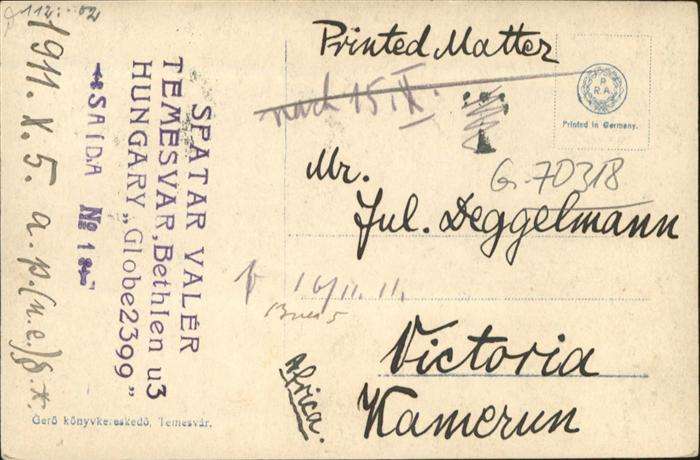 Printed Matter
nach 15.IX.
R.
P.R.A.
Printed in Germany.
G. 70318
Mr.
Jul. Deggelmann
16/11. 11.
Victoria
Kamerun
Africa.
SPATAR VALÉR
TEMESVAR, Bethlen u3
HUNGARY „Globe2399”
SAIDA № 18
1911. X. 5. a. p. (u. e.) g. x.
Gerő könyvkereskedő, Temesvár.